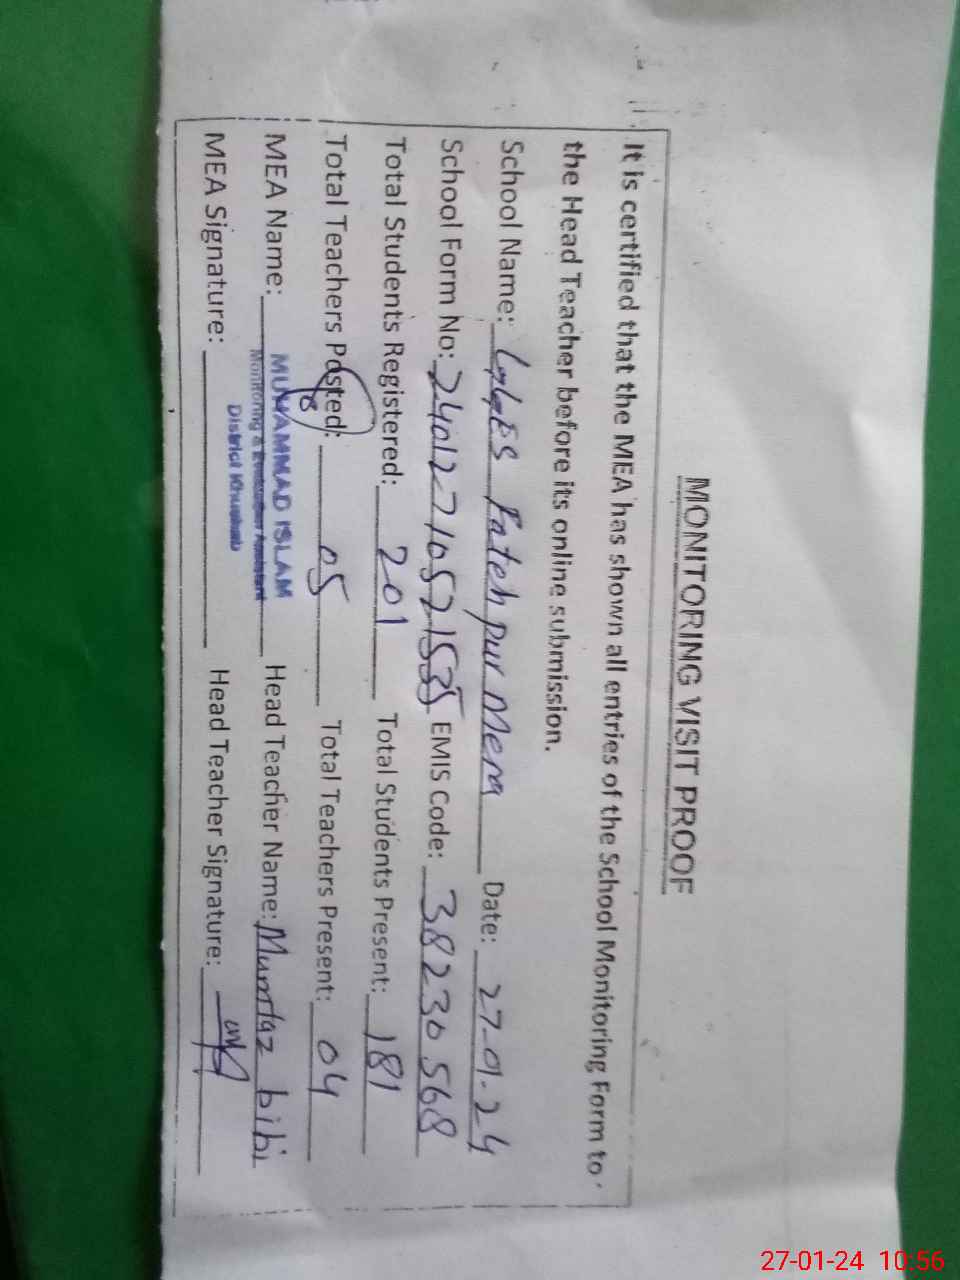 MONITORING VISIT PROOF
It is certified that the MEA has shown all entries of the School Monitoring Form to
the Head Teacher before its online submission.
School Name: GGES Fatehpur Mera Date: 27-01-24
School Form No: 240122710521535 EMIS Code: 38230568
Total Students Registered: 201 Total Students Present: 181
Total Teachers Posted: 05 Total Teachers Present: 04
MEA Name: MUHAMMAD ISLAM Head Teacher Name: Mumtaz bibi
Monitoring & Evaluation Assistant
District Khushab
MEA Signature: Head Teacher Signature:
27-01-24 10:56